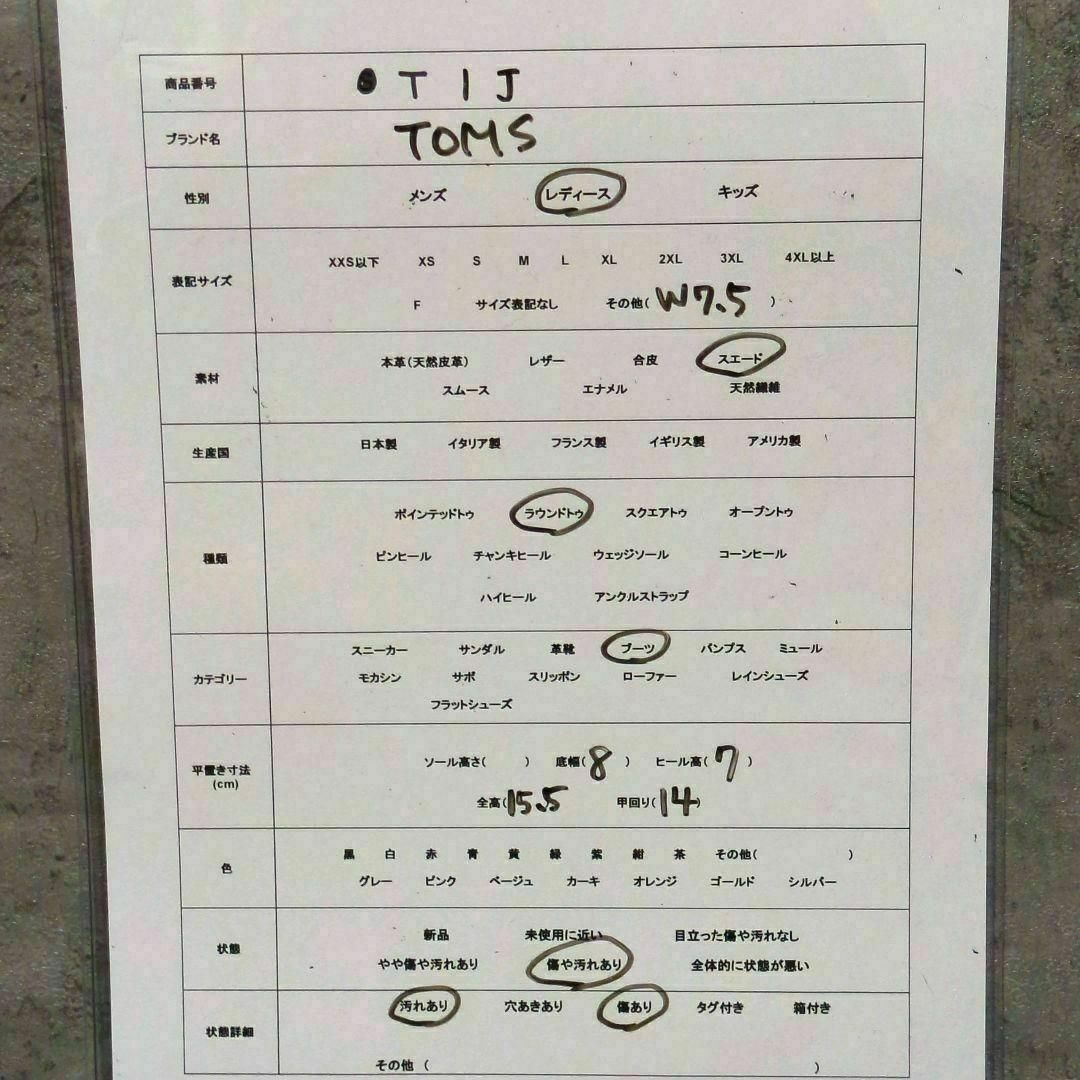 商品番号 T I J
ブランド名 TOMS
性別 メンズ レディース キッズ
XXS以下 XS S M L XL 2XL 3XL 4XL以上
表記サイズ
F サイズ表記なし その他( W7.5 )
本革(天然皮革) レザー 合皮 スエード
素材
スムース エナメル 天然繊維
生産国 日本製 イタリア製 フランス製 イギリス製 アメリカ製
ポインテッドトゥ ラウンドトゥ スクエアトゥ オープントゥ
種類 ピンヒール チャンキヒール ウェッジソール コーンヒール
ハイヒール アンクルストラップ
スニーカー サンダル 革靴 ブーツ パンプス ミュール
カテゴリー モカシン サボ スリッポン ローファー レインシューズ
フラットシューズ
平置き寸法 ソール高さ( ) 底幅( 8 ) ヒール高( 7 )
(cm) 全高(15.5 甲回り(14)
黒 白 赤 青 黄 緑 紫 紺 茶 その他( )
色
グレー ピンク ベージュ カーキ オレンジ ゴールド シルバー
新品 未使用に近い 目立った傷や汚れなし
状態
やや傷や汚れあり 傷や汚れあり 全体的に状態が悪い
汚れあり 穴あきあり 傷あり タグ付き 箱付き
状態詳細
その他 ( )